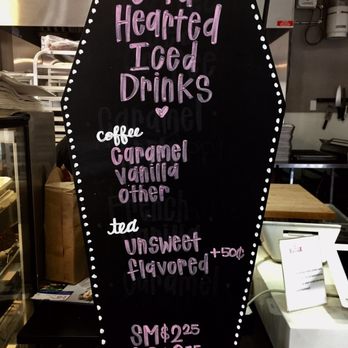 Hearted
Iced
Drinks
coffee
caramel
vanilla
other
tea
unsweet
flavored +50¢
SM $2.25